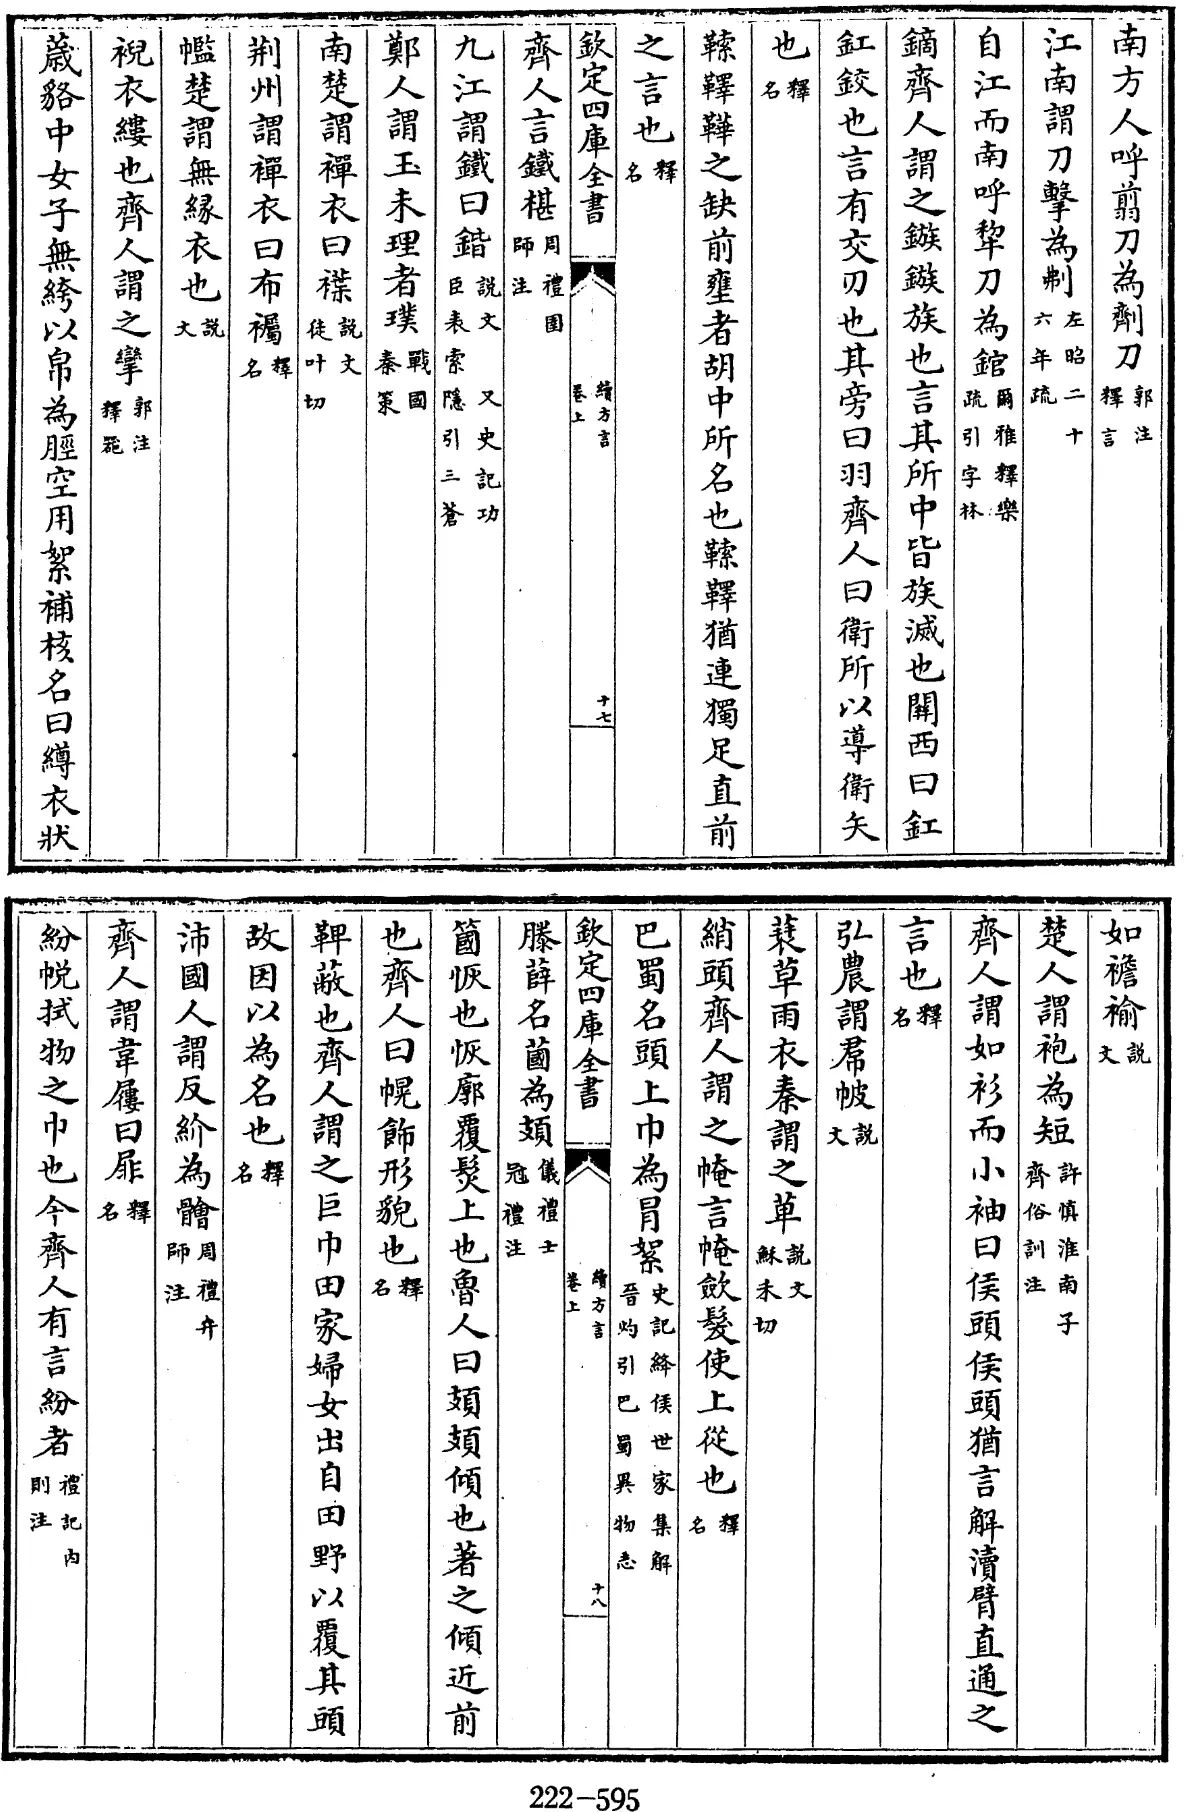 南方人呼翦刀為劑刀郭注釋言
江南謂刀擊為刜左昭二十六年疏
自江而南呼犂刀為錧爾雅釋樂疏引字林
鏑齊人謂之鏃鏃族也言其所中皆族滅也關西曰釭
釭鉸也言有交刃也其旁曰羽齊人曰衛所以導衛矢
也釋名
鞾之缺前壅者胡中所名也猶連獨足直前
之言也釋名
欽定四庫全書
續方言卷上
十七
齊人言鐵椹周禮圉師注
九江謂鐵曰鍇說文 又史記功臣表索隱引三蒼
鄭人謂玉未理者璞戰國秦策
南楚謂襌衣曰褋說文徒叶切
荆州謂襌衣曰布襡釋名
㡮楚謂無緣衣也說文
裞衣縷也齊人謂之攣郭注釋器
薉貉中女子無絝以帛為脛空用絮補核名曰繜衣狀
如襜褕說文
楚人謂袍為短許慎淮南子齊俗訓注
齊人謂如衫而小袖曰侯頭侯頭猶言解瀆臂直通之
言也釋名
弘農謂帬帔說文
蓑草雨衣秦謂之萆說文穌禾切
綃頭齊人謂之㡋言㡋斂髮使上從也釋名
巴蜀名頭上巾為冒絮史記絳侯世家集解晉灼引巴蜀異物志
欽定四庫全書
續方言卷上
十八
滕薛名蔮為頍儀禮士冠禮注
簂恢也恢廓覆髮上也魯人曰頍頍傾也著之傾近前
也齊人曰幌飾形貌也釋名
鞞蔽也齊人謂之巨巾田家婦女出自田野以覆其頭
故因以為名也釋名
沛國人謂反紒為䯤周禮弁師注
齊人謂韋屨曰屝釋名
紛帨拭物之巾也今齊人有言紛者禮記內則注
222-595